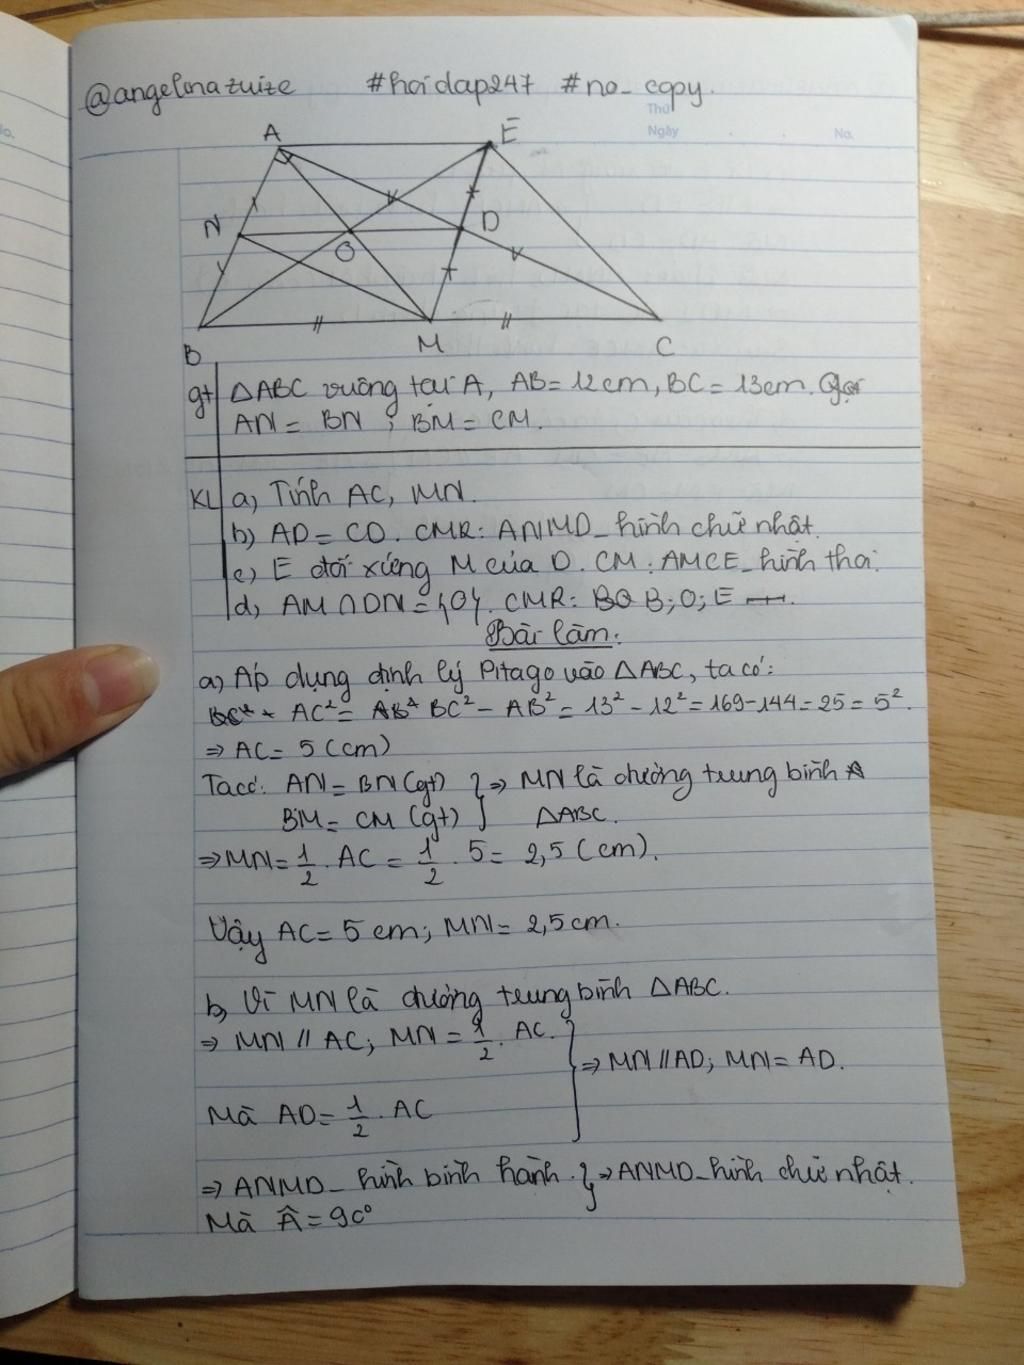 @angelinazuize #hoidap247 #no_copy.
Thứ
Ngày . . No.
A E
N D
O
B M C
gt ΔABC vuông tại A, AB = 12cm, BC = 13cm. Gọi
AN = BN ; BM = CM.
KL a, Tính AC, MN.
b) AD = CD. CMR: ANMD_hình chữ nhật.
c) E đối xứng M của D. CM: AMCE_hình thoi.
d, AM ∩ DN = {O}. CMR: B; O; E
Bài làm:
a) Áp dụng định lý Pitago vào ΔABC, ta có:
AC² = BC² - AB² = 13² - 12² = 169 - 144 = 25 = 5².
⇒ AC = 5 (cm)
Ta có: AN = BN (gt) } ⇒ MN là đường trung bình
BM = CM (gt) } ΔABC.
⇒ MN = 1/2 . AC = 1/2 . 5 = 2,5 (cm).
Vậy AC = 5 cm; MN = 2,5 cm.
b, Vì MN là đường trung bình ΔABC.
⇒ MN // AC; MN = 1/2 . AC.
} ⇒ MN // AD; MN = AD.
Mà AD = 1/2 . AC
⇒ ANMD_ hình bình hành. } ⇒ ANMD_hình chữ nhật.
Mà Â = 90°